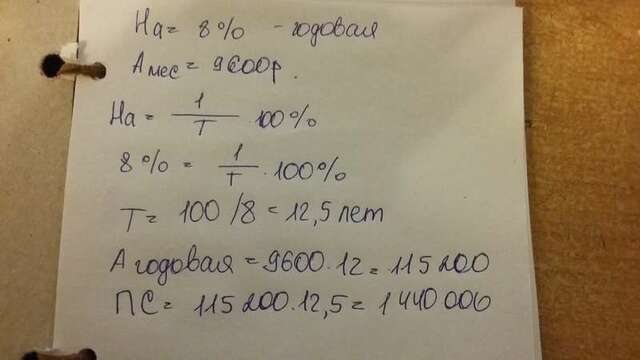 На = 8% - годовая
Амес = 9600р.
На = 1/Т 100%
8% = 1/Т · 100%
Т = 100/8 = 12,5 лет
А годовая = 9600·12 = 115 200
ПС = 115 200·12,5 = 1 440 000